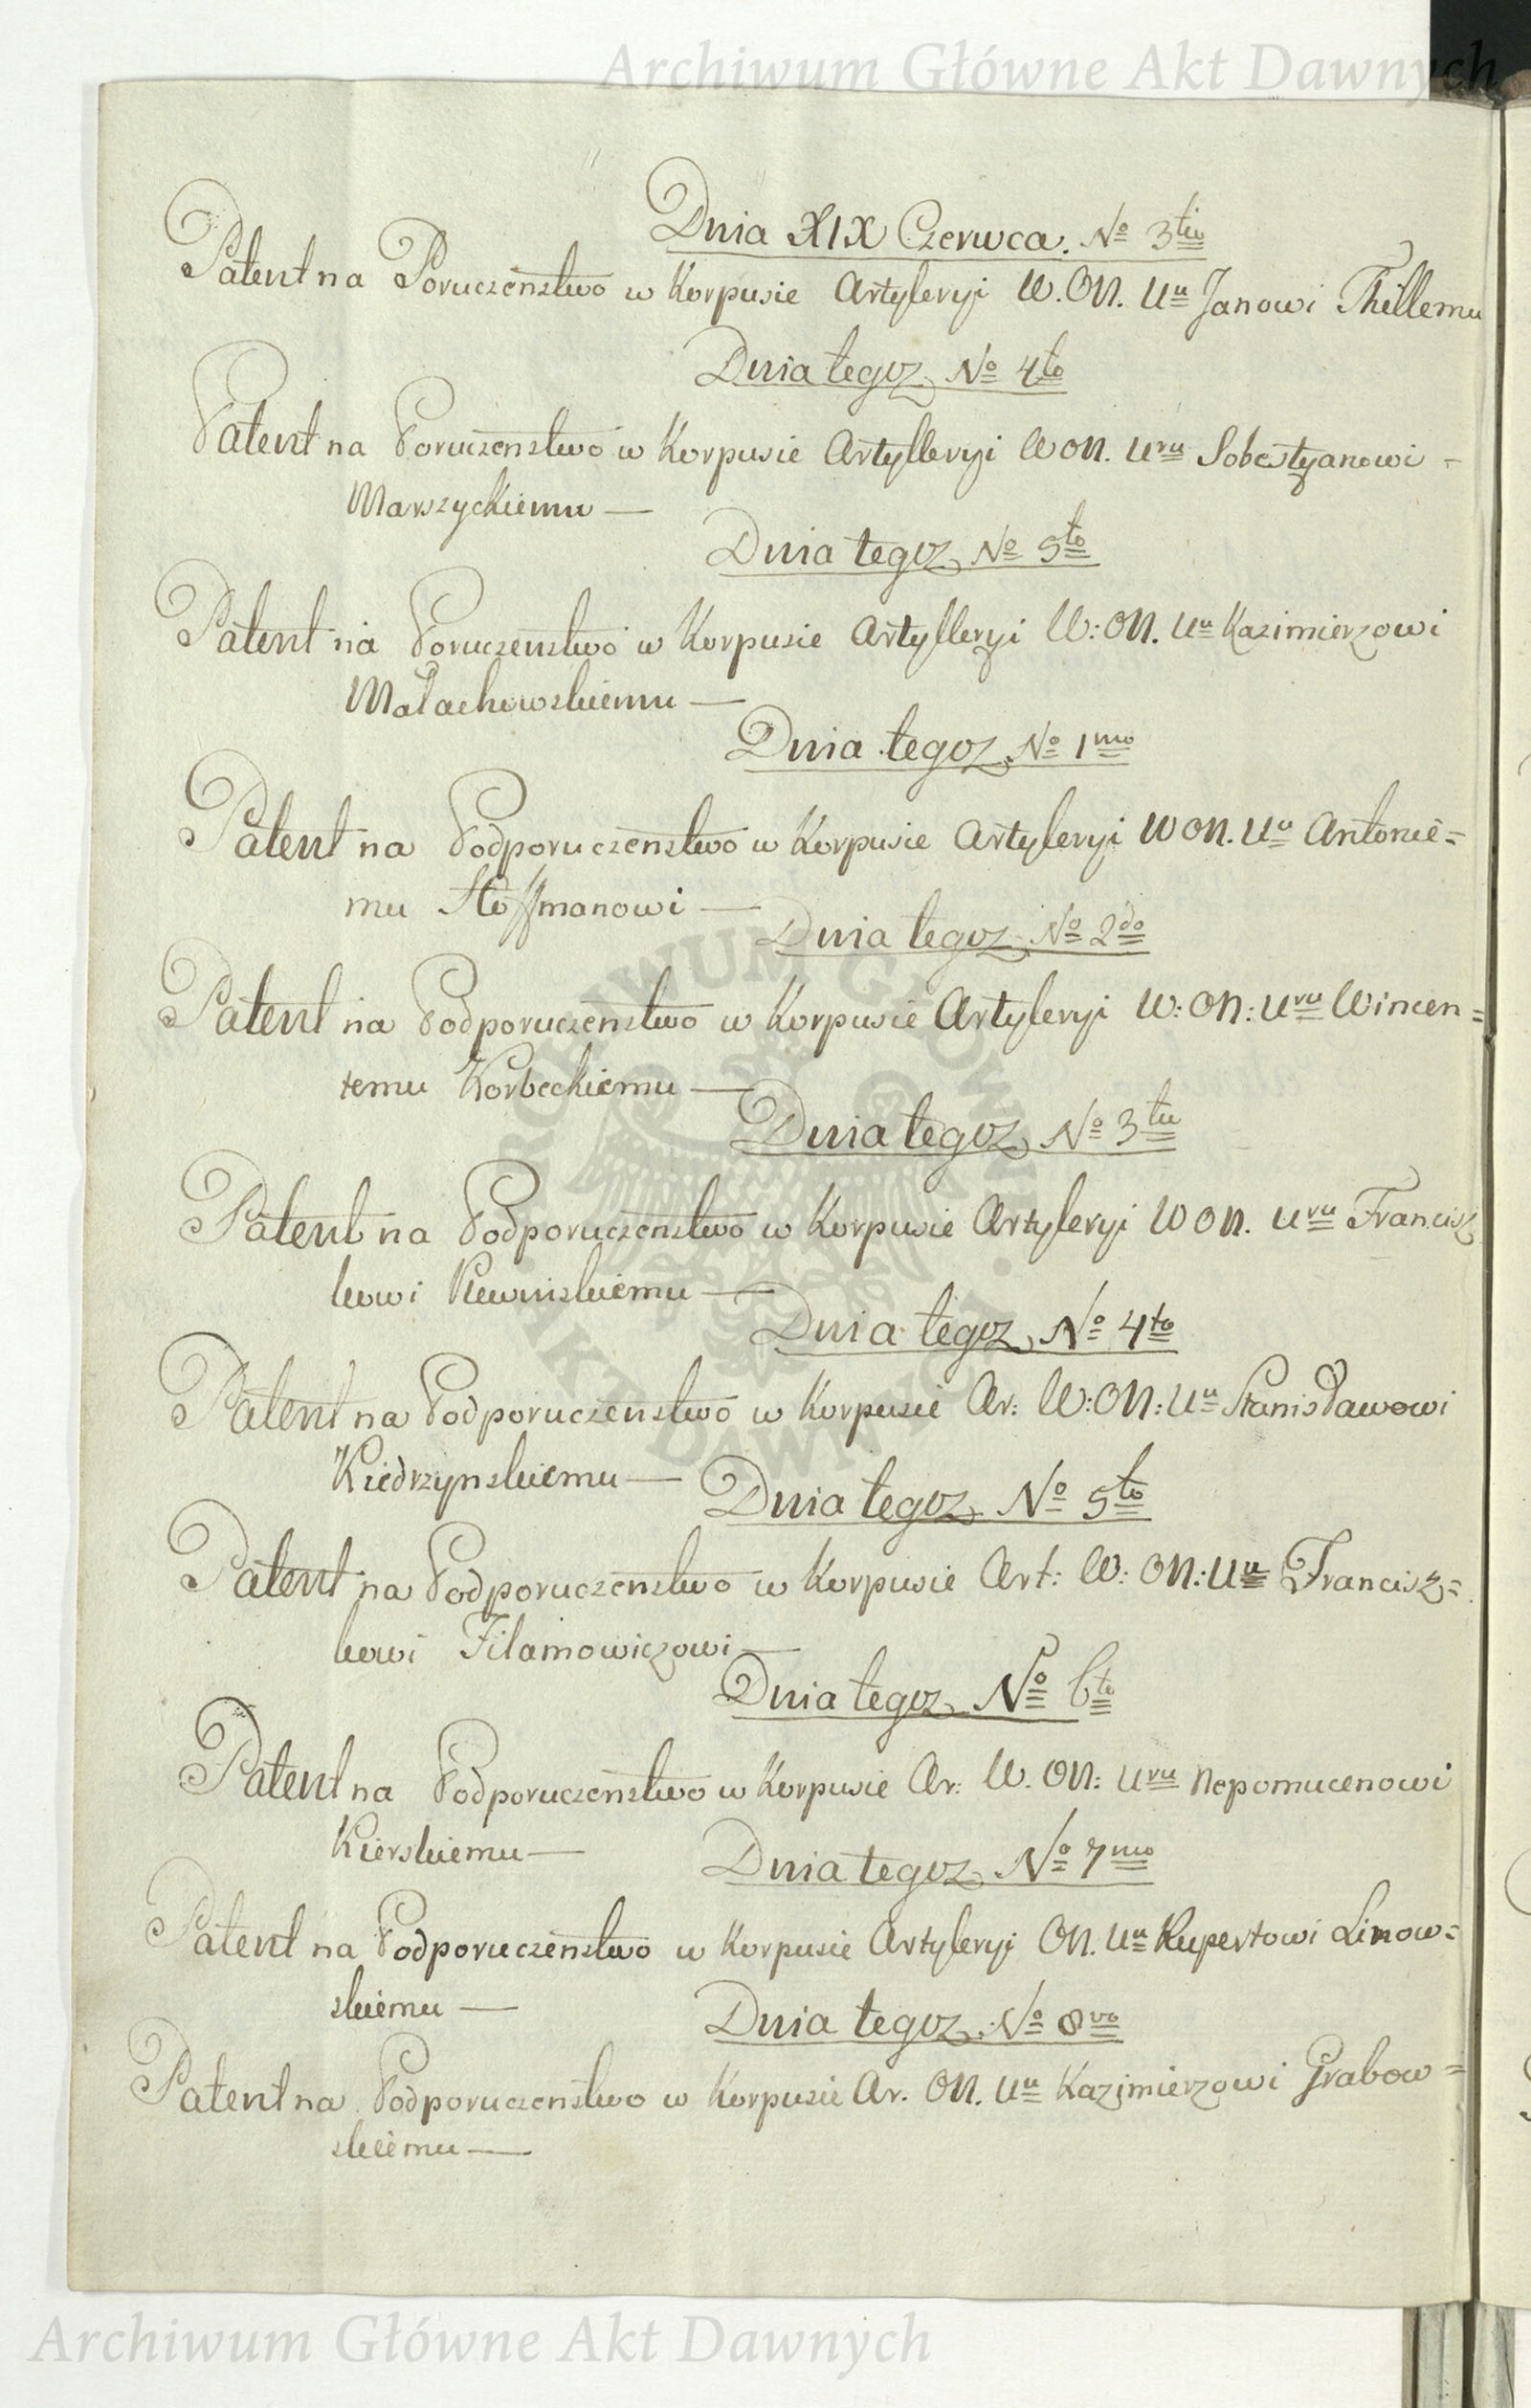 Archiwum Główne Akt Dawnych
Dnia XIX Czerwca. No 3tio
Patent na Poruczenstwo w Korpusie Artyleryi W. ON. Uu Janowi Thillemu
Dnia tegoz No 4to
Patent na Poruczenstwo w Korpusie Artylleryi WON. Uru Sobestyanowi -
Marszyckiemu —
Dnia tegoz No 5to
Patent na Poruczenstwo w Korpusie Artylleryi W: ON. Uu Kazimierzowi
Małachowskiemu —
Dnia tegoz No 1mo
Patent na Podporuczenstwo w Korpusie Artyleryi WON. Uu Antonie=
mu Hoffmanowi —
Dnia tegoz No 2do
Patent na Podporuczenstwo w Korpusie Artyleryi W: ON: Uru Wincen=
temu Korbeckiemu —
Dnia tegoz No 3tio
Patent na Podporuczenstwo w Korpusie Artyleryi WON. Uru Francisz
kowi —
Dnia tegoz No 4to
Patent na Podporuczenstwo w Korpusie Ar: W: ON: Uu Stanisławowi
Kiedrzynskiemu —
Dnia tegoz No 5to
Patent na Podporuczenstwo w Korpusie Art: W: ON: Uu Francisz=
kowi Filamowiczowi —
Dnia tegoz No 6to
Patent na Podporuczenstwo w Korpusie Ar: W. ON: Uru Nepomucenowi
Kierskiemu —
Dnia tegoz No 7mo
Patent na Podporuczenstwo w Korpusie Artyleryi ON. Uu Rupertowi Linow=
skiemu —
Dnia tegoz No 8vo
Patent na Podporuczenstwo w Korpusie Ar. ON. Uu Kazimierzowi Grabow=
skiemu —
ARCHIWUM GŁÓWNE AKT DAWNYCH
Archiwum Główne Akt Dawnych